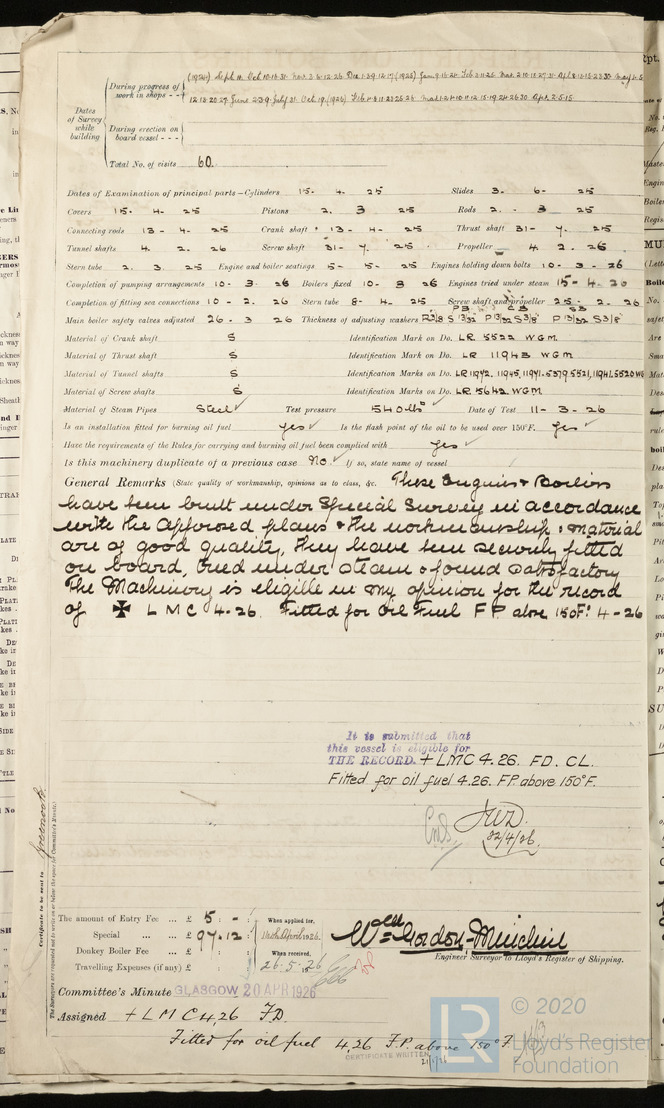 Dates of Survey while building
During progress of work in shops - - -
(1924) Sept 11. Oct 10.16.31. Nov. 3.6.12.26 Dec 1.3.9.12.17 (1925) Jan. 9.16.24 Feb 3.11.26. Mar. 2.10.
12.18.20.27 June 2.3.9. July 31. Oct. 19. (1926)
During erection on board vessel - - -
Total No. of visits 60.
Dates of Examination of principal parts—Cylinders 15. 4. 25 Slides 3. 6. 25
Covers 15. 4. 25 Pistons 2. 3 25 Rods 2. 3 25
Connecting rods 13 - 4 - 25 Crank shaft 13 - 4 - 25 Thrust shaft 31 - 7. 25
Tunnel shafts 4. 2. 26 Screw shaft 31 - 7. 25 Propeller 4. 2. 26
Stern tube 2. 3. 25 Engine and boiler seatings 5 - 5 - 25 Engines holding down bolts 10 - 3 - 26
Completion of pumping arrangements 10 - 3. 26 Boilers fixed 10 - 3 26 Engines tried under steam 15 - 4. 26
Completion of fitting sea connections 10 - 2. 26 Stern tube 8 - 4. 25 Screw shaft and propeller 25. 2. 26
Main boiler safety valves adjusted 26 - 3 26 Thickness of adjusting washers P 13/32 S 3/8 P 13/32 S 3/8
Material of Crank shaft S Identification Mark on Do. LR 5522 WGM
Material of Thrust shaft S Identification Mark on Do. LR 11943 WGM
Material of Tunnel shafts S Identification Marks on Do. LR 11942, 11945, 11941, 5379, 5521,
Material of Screw shafts S Identification Marks on Do. LR 5642 WGM
Material of Steam Pipes Steel ✓ Test pressure 540 lbs ✓ Date of Test 11 - 3 - 26
Is an installation fitted for burning oil fuel yes ✓ Is the flash point of the oil to be used over 150°F. yes ✓
Have the requirements of the Rules for carrying and burning oil fuel been complied with yes ✓
Is this machinery duplicate of a previous case No. ✓ If so, state name of vessel
General Remarks (State quality of workmanship, opinions as to class, &c. These Engines & Boilers
have been built under Special Survey in accordance
with the approved plans & the workmanship & material
are of good quality, they have been securely fitted
on board, tried under steam & found satisfactory
The Machinery is eligible in my opinion for the record
of ✠ LMC 4.26. Fitted for Oil Fuel F.P. above 150°F. 4-26
It is submitted that
this vessel is eligible for
THE RECORD. + LMC 4.26. FD. CL.
Fitted for oil fuel 4.26. F.P. above 150°F.
Certificate to be sent to Greenock
(The Surveyors are requested not to write on or below the space for Committee's Minute.)
The amount of Entry Fee ... £ 5 : - : When applied for,
Special ... ... £ 97.12 :
Donkey Boiler Fee ... £ : : When received,
Travelling Expenses (if any) £ : : 26.5.26
Wm Gordon-Minchin
Engineer Surveyor to Lloyd's Register of Shipping.
Committee's Minute GLASGOW 20 APR 1926
Assigned + LMC 4,26 FD
Fitted for oil fuel 4,26 F.P. above 150°F
CERTIFICATE WRITTEN
LR © 2020
Lloyd's Register
Foundation